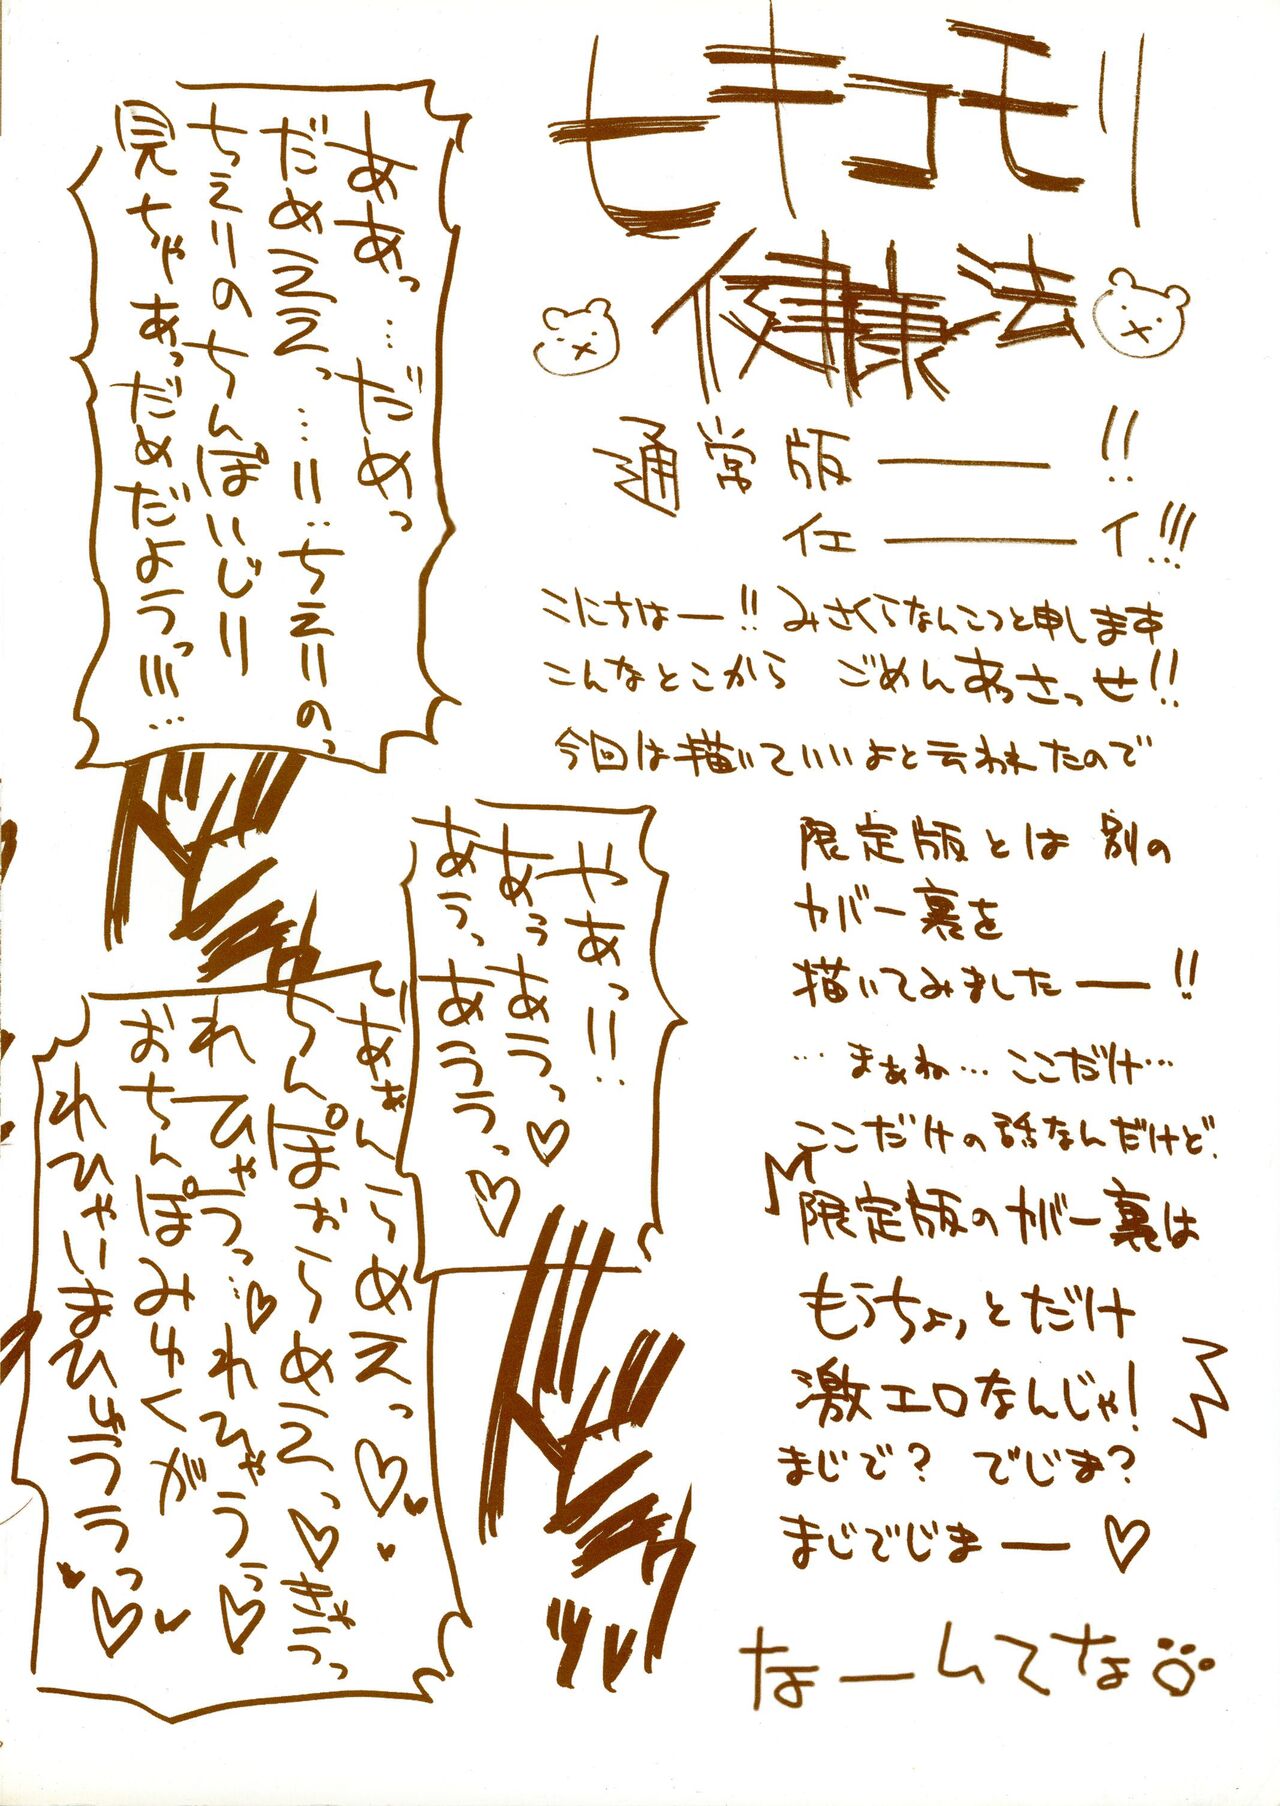 ヒキコモリ
健康法
通常版――!!
イエ――イ!!!
こにちはー!! みさくらなんこつと申します
こんなとこから ごめんあさっせ!!
今回は描いていいよと云われたので
限定版とは 別の
カバー裏を
描いてみましたー!!
…まぁね…ここだけ…
ここだけの話なんだけど、
限定版のカバー裏は
もうちょっとだけ
激エロなんじゃ!
まじで? でじま?
まじでじまー♡
なーんてな
ああっ…だめっ
だめえええっ…!!…ちぇりのっ
ちぇりのちんぽいじり
見ちゃあっだめだようっ!!!…
やあっ!!…
あっあうっ♡
あぅっあううっ♡
あ゛ぁんらめえっ♡
ちんぽぉらめえっ♡きゃうっ
れひゃうっ…♡れひゃうぅっ♡
おちんぽみゆくが
れひゃいまひゅううっ♡